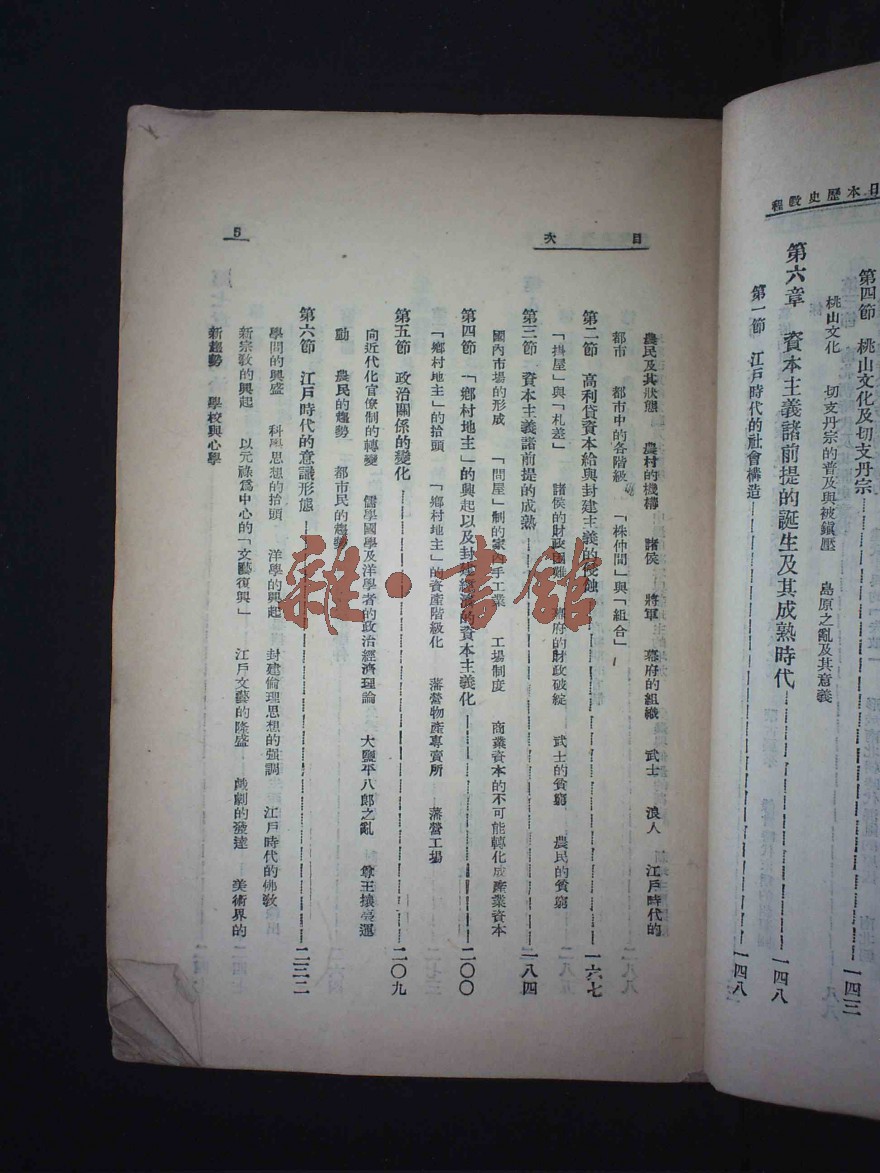 日本歷史教程
第四節 桃山文化及切支丹宗 一四三
桃山文化 切支丹宗的普及與被鎭壓 島原之亂及其意義
第六章 資本主義諸前提的誕生及其成熟時代 一四八
第一節 江戶時代的社會構造 一四八
目次
5
農民及其狀態 農村的機構 諸侯 將軍 幕府的組織 武士 浪人 江戶時代的
都市 都市中的各階級 「株仲間」與「組合」
第二節 高利貸資本給與封建主義的侵蝕 一六七
「掛屋」與「札差」 諸侯的財政困難 幕府的財政破綻 武士的貧窮 農民的貧窮
第三節 資本主義諸前提的成熟 一八四
國內市場的形成 「問屋」制的家內手工業 工場制度 商業資本的不可能轉化成產業資本
第四節 「鄉村地主」的興起以及封地經濟的資本主義化 二〇〇
「鄉村地主」的抬頭 「鄉村地主」的資產階級化 藩營物產專賣所 藩營工場
第五節 政治關係的變化 二〇九
向近代化官僚制的轉變 儒學國學及洋學者的政治經濟理論 大鹽平八郎之亂 尊王攘夷運
動 農民的趨勢 都市民的趨勢
第六節 江戶時代的意識形態 二三二
學問的興盛 科學思想的抬頭 洋學的興起 封建倫理思想的强調 江戶時代的佛敎
新宗敎的興起 以元祿爲中心的「文藝復興」 江戶文藝的隆盛 戲劇的發達 美術界的
新趨勢 學校與心學
雜·書館